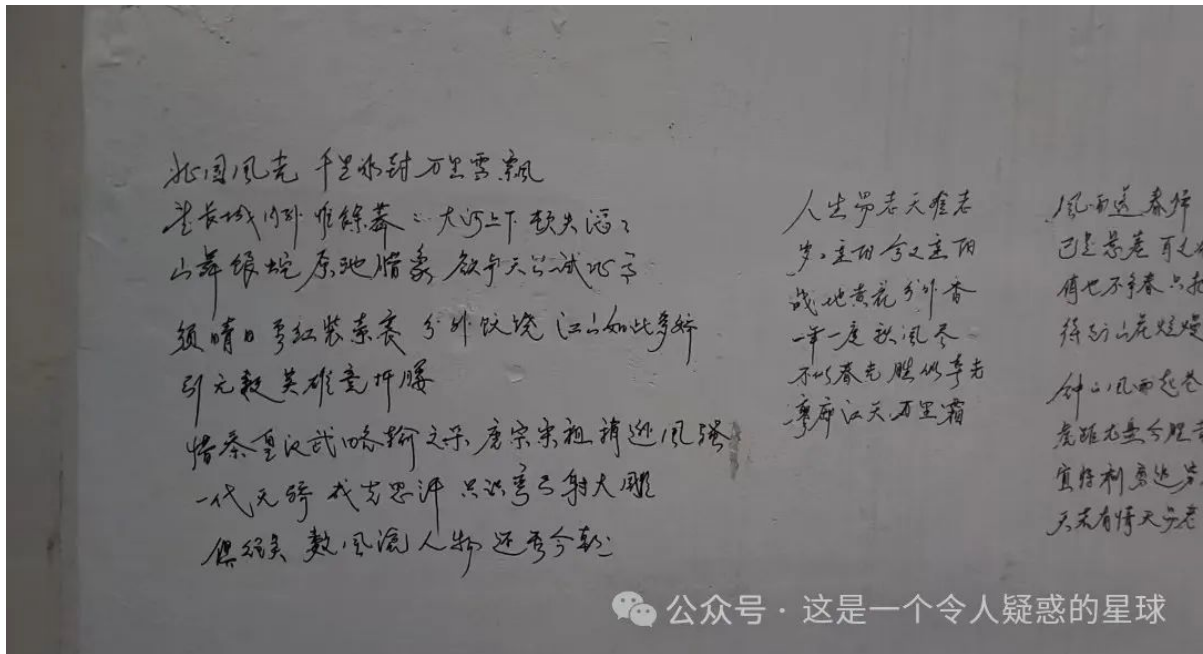 北国风光 千里冰封 万里雪飘
望长城内外 惟馀莽〻 大河上下 顿失滔〻
山舞银蛇 原驰腊象 欲与天公试比高
须晴日 看红装素裹 分外妖娆 江山如此多娇
引无数英雄竞折腰
惜秦皇汉武 略输文采 唐宗宋祖 稍逊风骚
一代天骄 成吉思汗 只识弯弓射大雕
俱往矣 数风流人物 还看今朝
人生易老天难老
岁〻重阳 今又重阳
战地黄花分外香
一年一度秋风
不似春光 胜似春光
寥廓江天万里霜
风雨送春归
已是悬崖百丈
俏也不争春 只把
待到山花烂熳
钟山风雨起苍
虎踞龙盘今胜
宜将剩勇追穷
天若有情天亦老
公众号·这是一个令人疑惑的星球